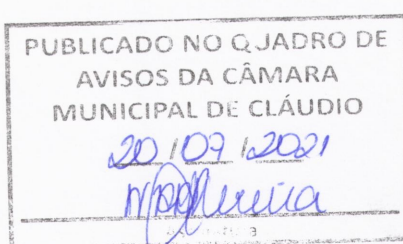 PUBLICADO NO QUADRO DE
AVISOS DA CÂMARA
MUNICIPAL DE CLÁUDIO
20/09/2021